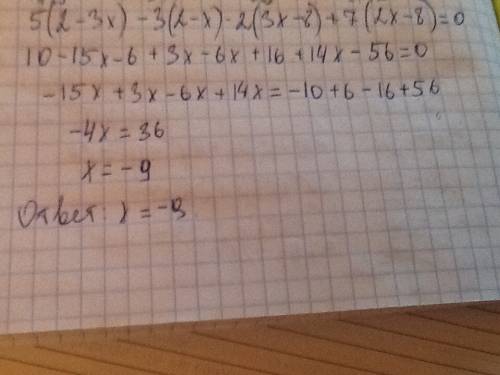 5(2-3x)-3(2-x)-2(3x-8)+7(2x-8)=0
10-15x-6+3x-6x+16+14x-56=0
-15x+3x-6x+14x=-10+6-16+56
-4x=36
x=-9
Ответ: x=-9